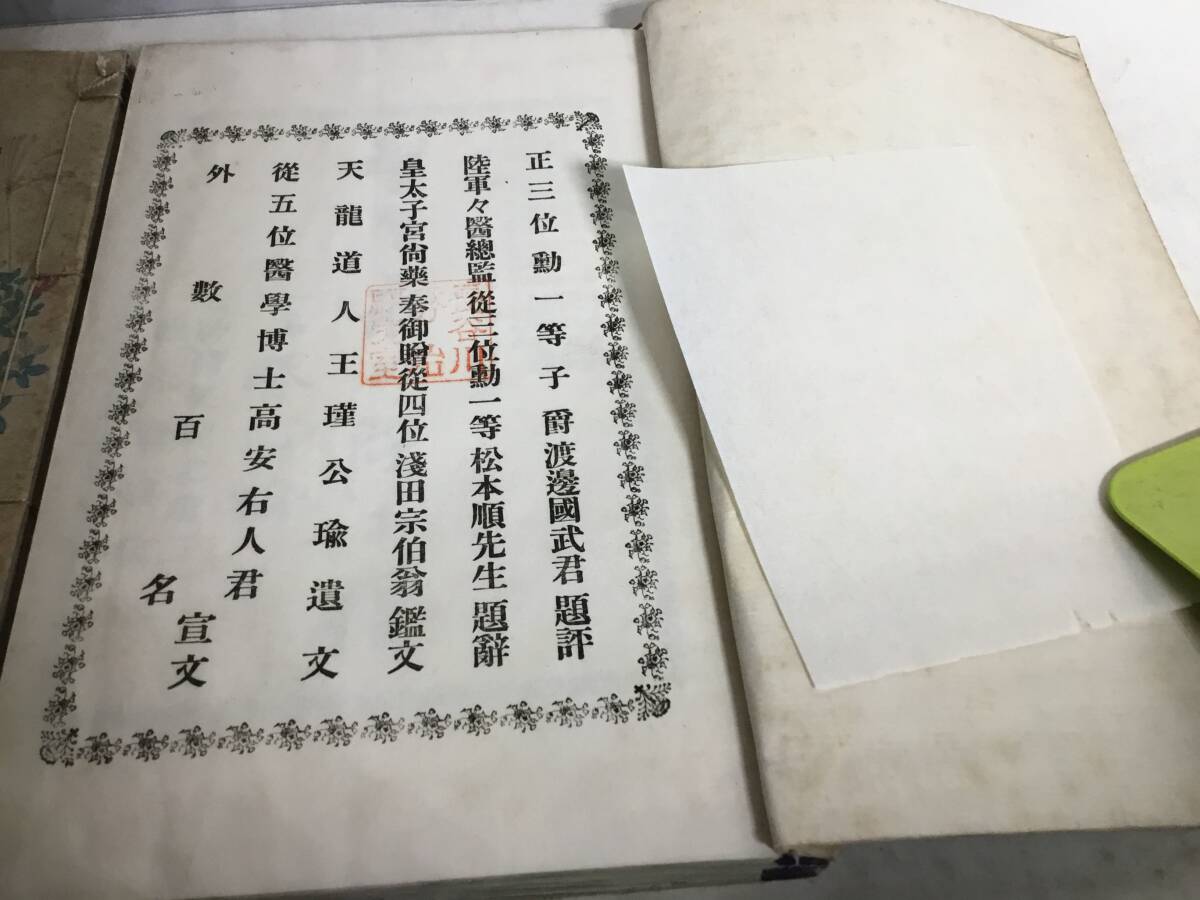 正三位勳一等子爵渡邊國武君題評
陸軍々醫總監從三位勳一等松本順先生題辭
皇太子宮尙藥奉御贈從四位淺田宗伯翁鑑文
天龍道人王瑾公瑜遺文
從五位醫學博士高安右人君
外數百名
宣文